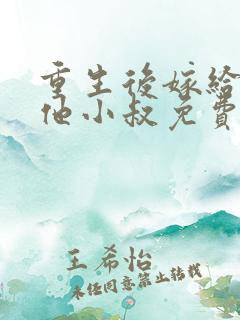 重生後嫁給
他小叔免費
王希怡
未经同意禁止转载